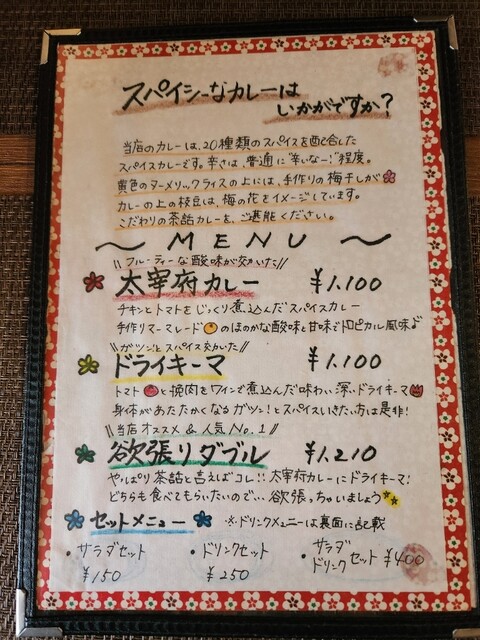 スパイシーなカレーは
いかがですか?
当店のカレーは、20種類のスパイスを配合した
スパイスカレーです。辛さは、普通に"辛いなー!"程度。
黄色のターメリックライスの上には、手作りの梅干しが
カレーの上の枝豆は、梅の花をイメージしています。
こだわりの茶話カレーを、ご堪能ください。
~ MENU ~
\\フルーティーな酸味が効いた//
太宰府カレー ¥1.100
チキンとトマトをじっくり煮込んだスパイスカレー
手作りマーマレードのほのかな酸味と甘味でトロピカル風味♪
\\ガツンとスパイス効いた//
ドライキーマ ¥1.100
トマトと挽肉をワインで煮込んだ味わい深いドライキーマ
身体があたたかくなるガツン!とスパイスいきたい方は是非!
\\当店オススメ&人気No.1//
欲張りダブル ¥1.210
やっぱり茶話と言えばコレ!!太宰府カレーにドライキーマ!
どちらも食べてもらいたいので…欲張っちゃいましょう
セットメニュー ※ドリンクメニューは裏面に記載
・サラダセット ・ドリンクセット ・サラダ ドリンク セット ¥400
¥150 ¥250